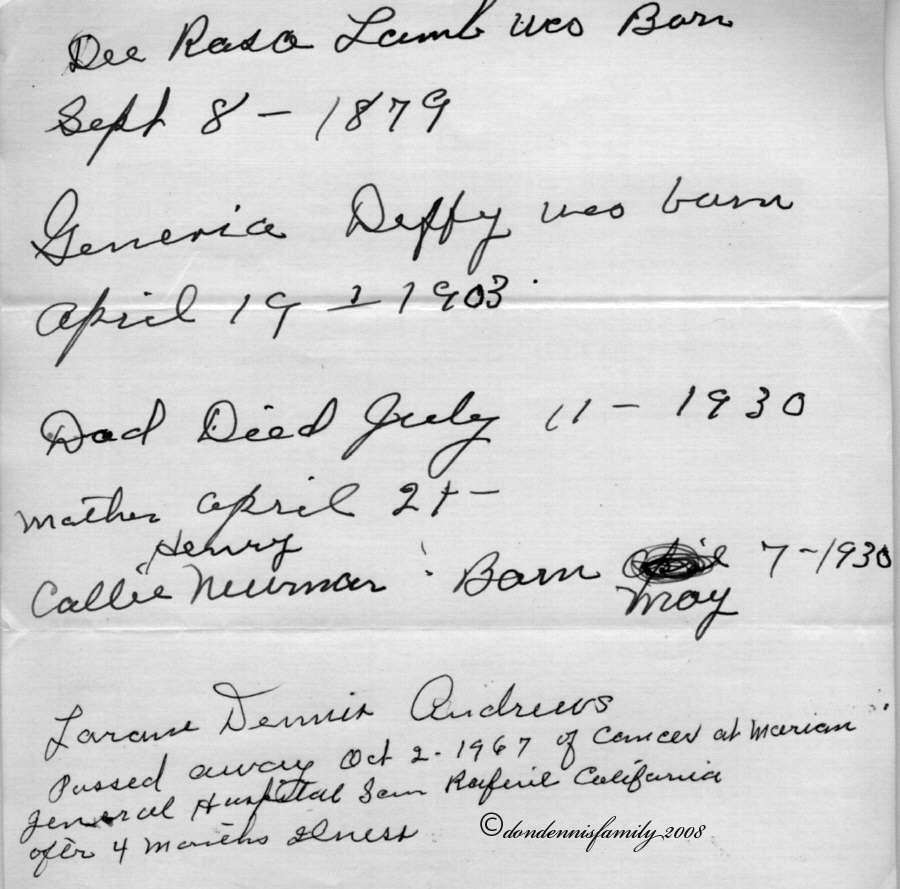 Dee Rasa Lamb was Born
Sept 8 - 1879
Generia Deffy was born
April 19 - 1903
Dad Died July 11 - 1930
Mother April 21 -
Henry
Callie Neurman Born 7 - 1930
May
Dennis Andrews
Passed away Oct 2 - 1967 of Cancer at Marian
General Hospital San Rafeil California
after 4 months Ilness
©dondennisfamily 2008